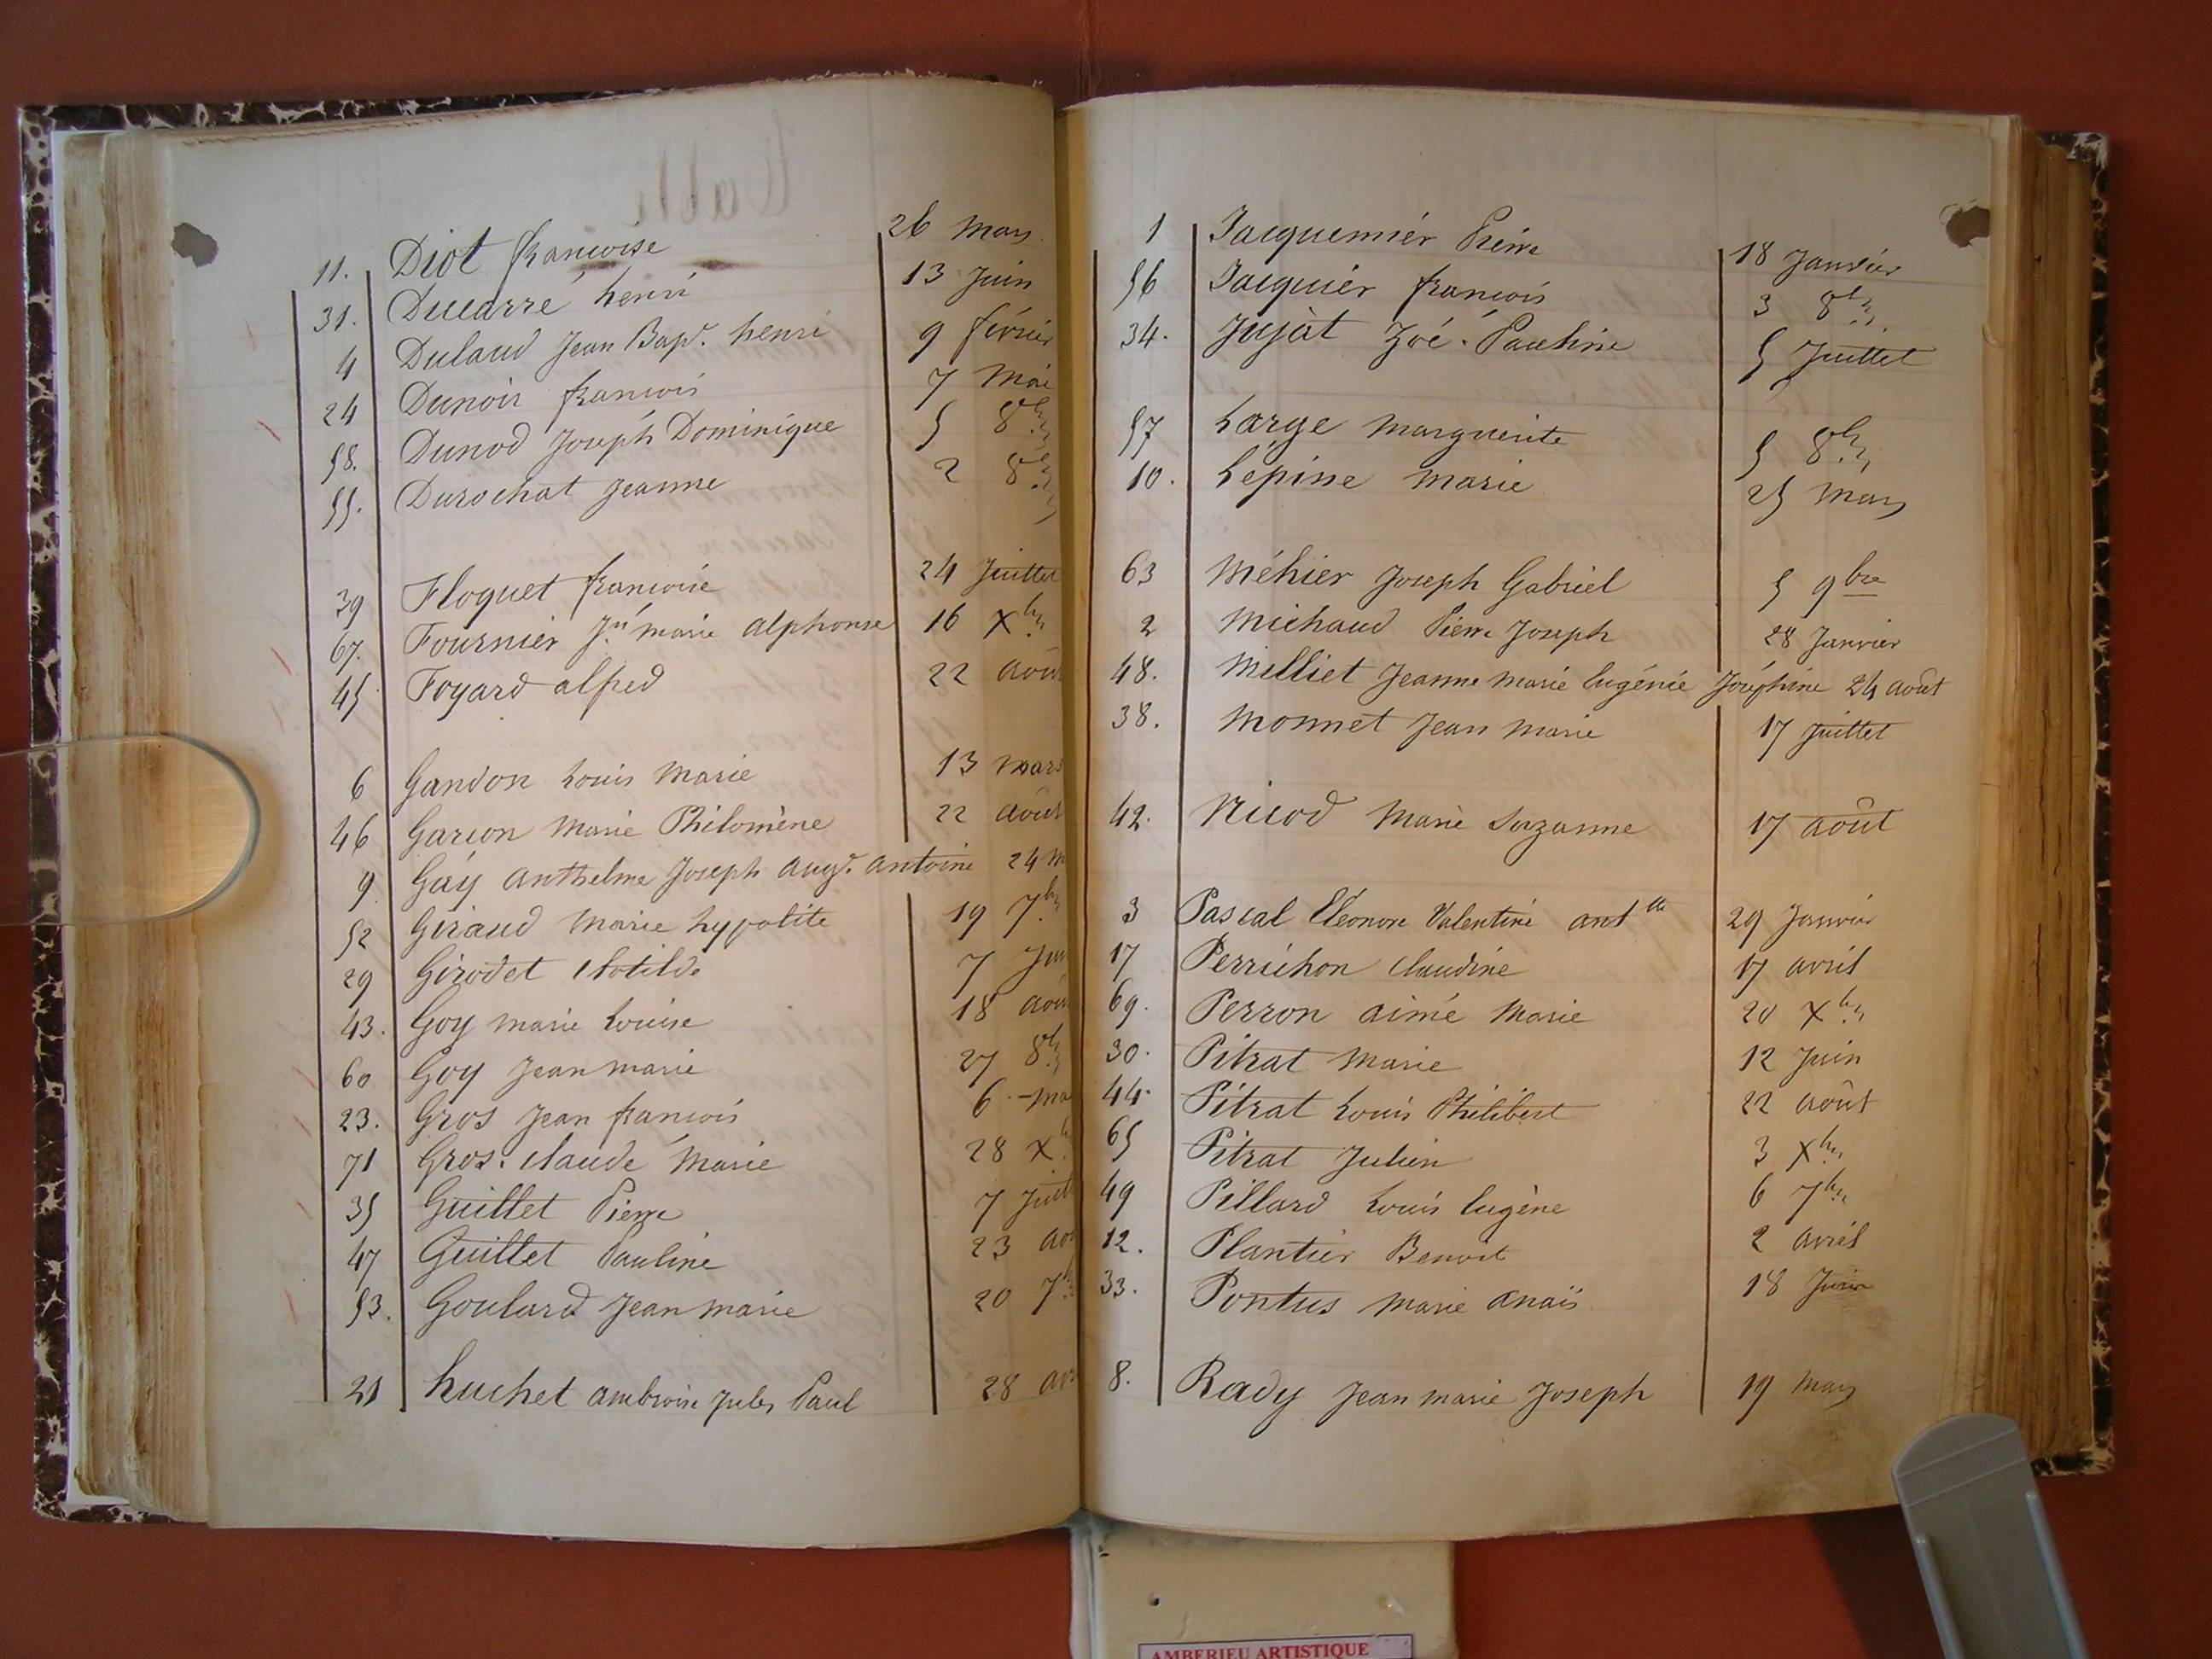 11. Diot françoise 26 Mars
31. Ducarré henri 13 Juin
4 Dulaud Jean Bapt. henri 9 février
24 Dunoir françois 7 Mai
58. Dunod Joseph Dominique 5 8bre
55. Durochat Jeanne 2 8bre
39 Floquet françoise 24 Juillet
67. Fournier Jn marie alphonse 16 Xbre
45. Foyard alfred 22 Août
6 Gandon Louis Marie 13 mars
46 Garcon Marie Philomène 22 août
9 Gáy anthelme Joseph Augt. antoine 24 M
52 Giraud Marie hypolite 19 7bre
29 Girodet Clotilde 7 Jui
43. Goy marie Louise 18 Aoû
60 Goy Jean marie 27 8bre
23. Gros Jean françois 6 ma
71 Gros. Claude Marie 28 Xb
35 Guillet Pierre 7 Juill
47 Guillet Pauline 23 Aoû
53. Goulard Jean marie 20 7b
21 huchet ambroise Jules Paul 28 av
1 Jacquemier Pierre 18 Janvier
56 Jacquier françois 3 8bre
34. Jujat Zoé. Pauline 5 Juillet
57 Large Marguerite 5 8bre
10. Lépine Marie 25 Mars
63 Méhier Joseph Gabriel 5 9bre
2 Michaud Pierre Joseph 28 Janvier
48. Milliet Jeanne Marie Eugénie Joséphine 24 août
38. Monnet Jean Marie 17 Juillet
42. Nicod Marie Suzanne 17 août
3 Pascal Eléonore Valentine anttte 29 Janvier
17 Perrichon Claudine 17 avril
69. Perron aimé Marie 20 Xbre
30. Pitrat Marie 12 Juin
44. Pitrat Louis Philibert 22 août
65 Pitrat Julien 3 Xbre
49 Pillard Louis Eugène 6 7bre
12. Plantier Benoit 2 avril
33. Pontus Marie Anaïs 18 Juin
8. Rady Jean Marie Joseph 19 Mars
AMBERIEU ARTISTIQUE